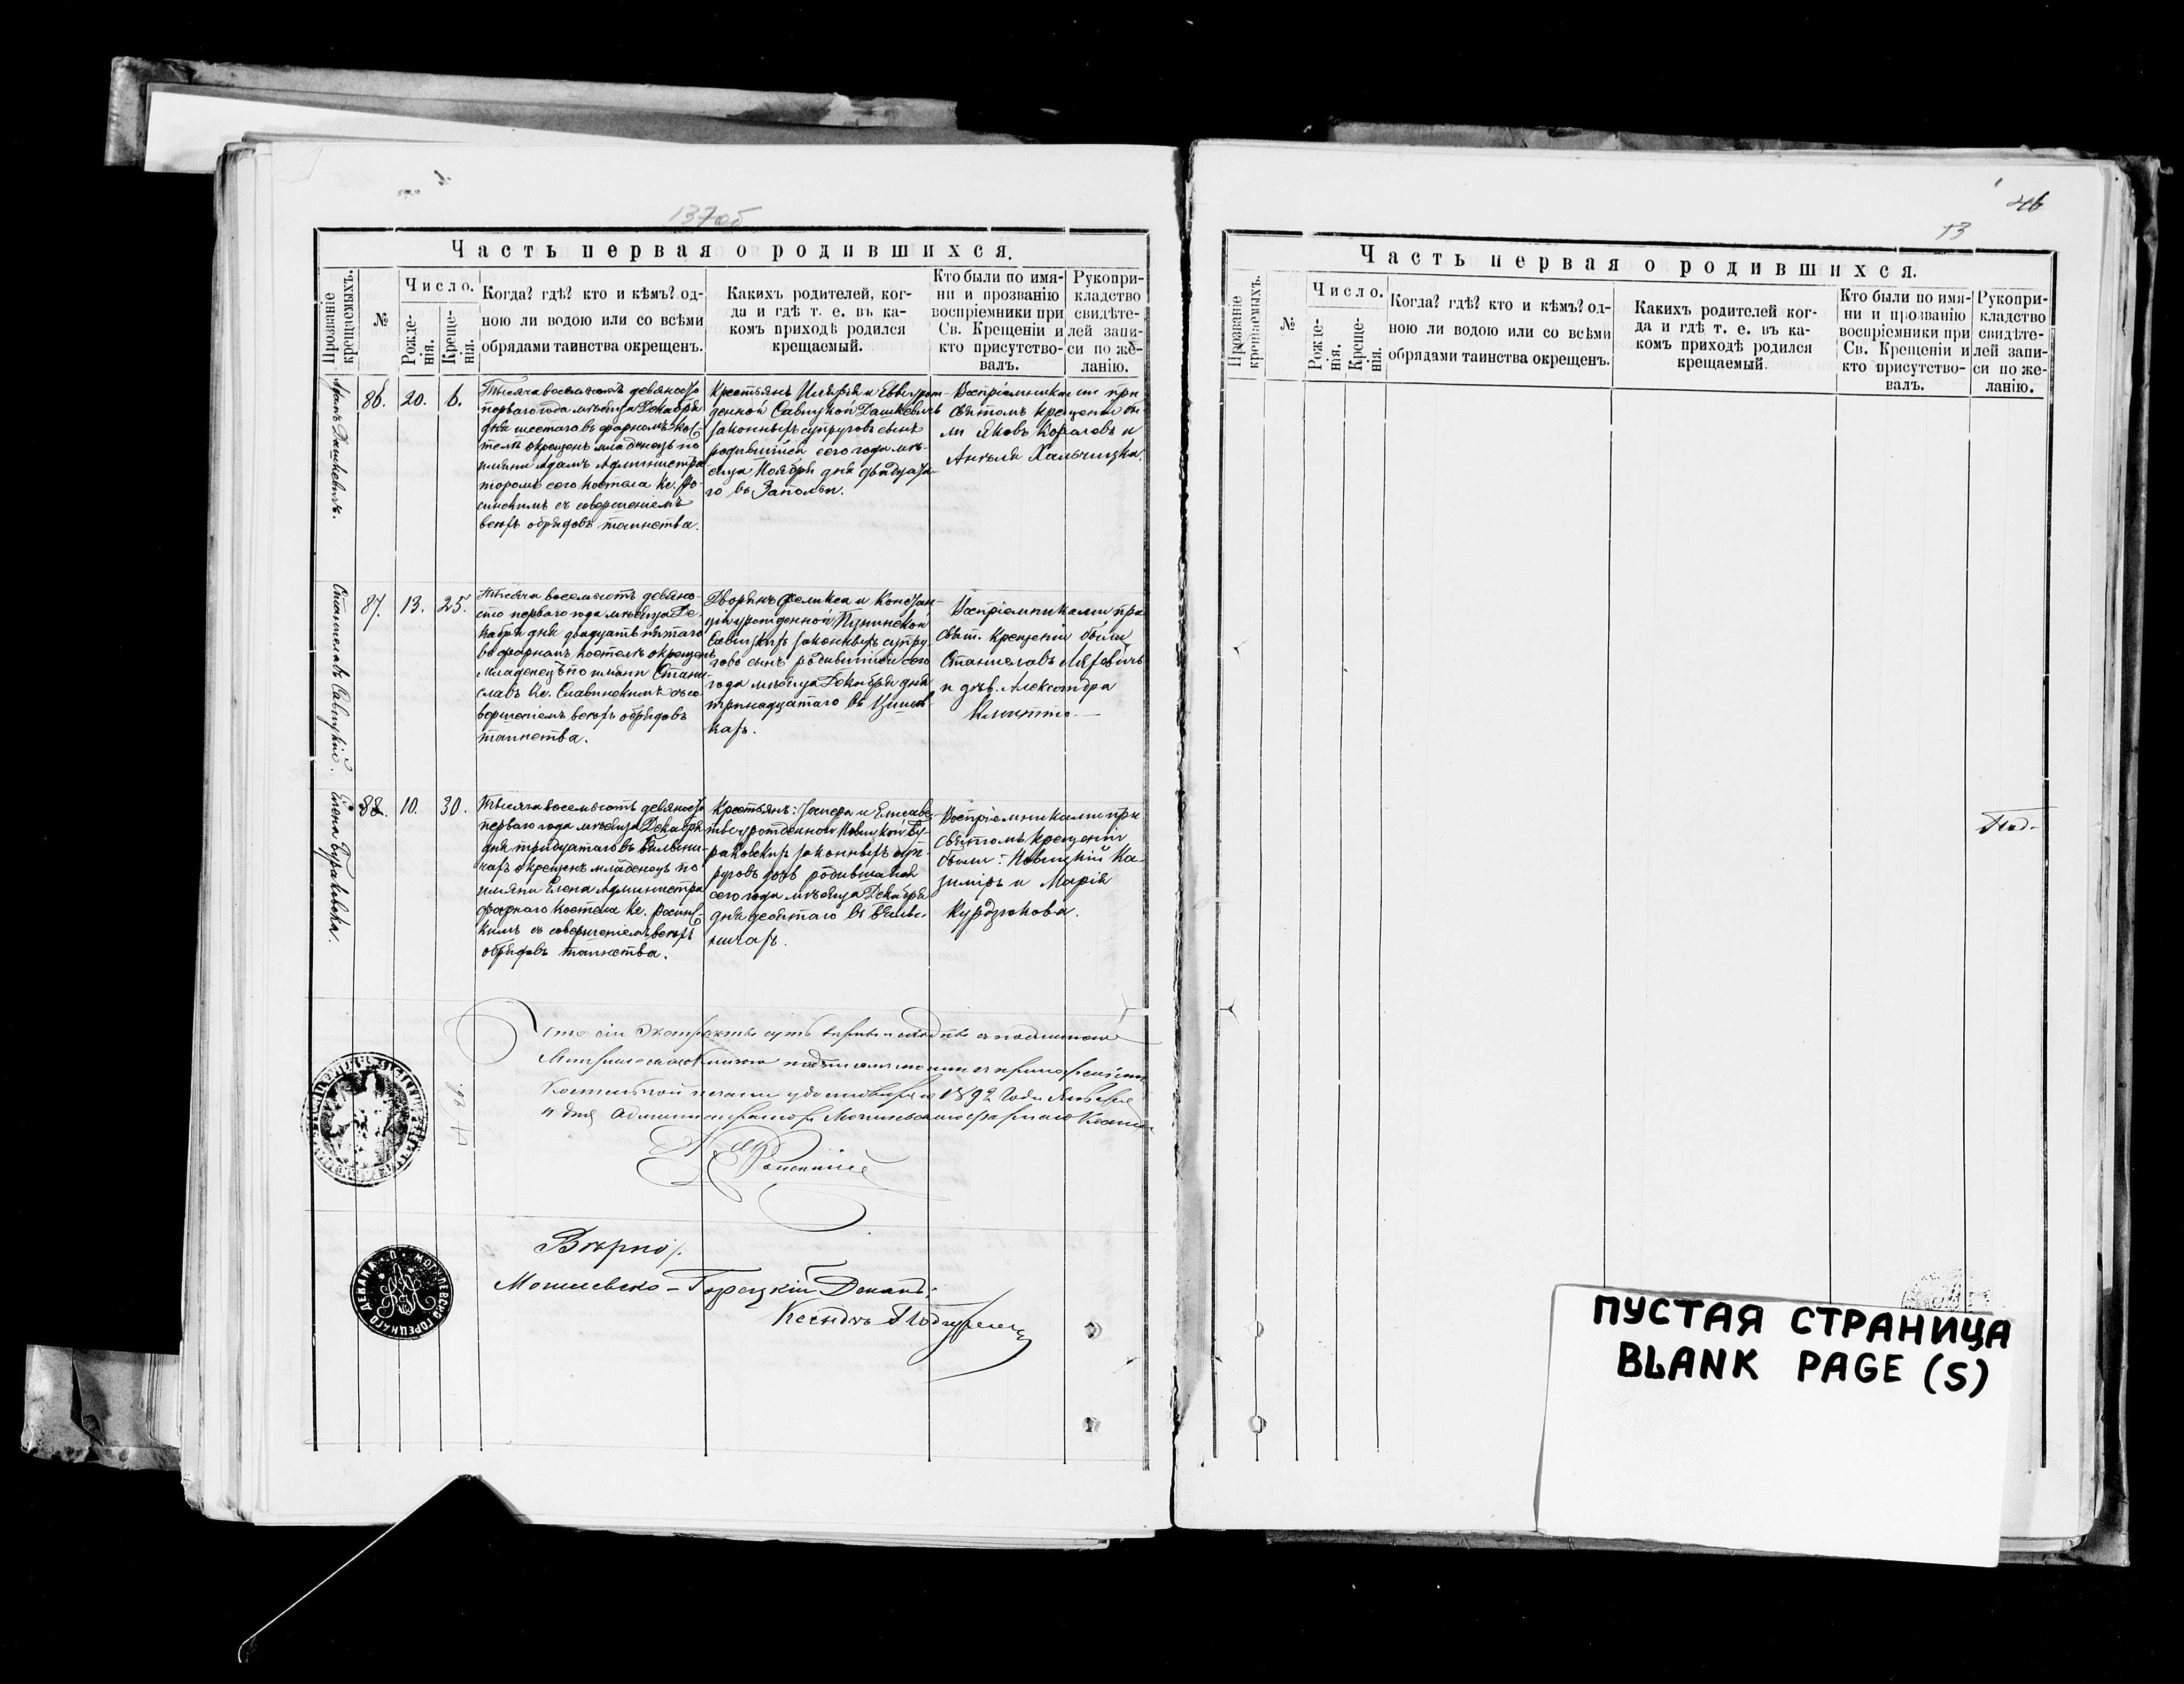 137об
Часть первая о родившихся.
Прозваніе крещаемыхъ.
№
Число.
Рожде-
нія.
Креще-
нія.
Когда? гдѣ? кто и кѣмъ? од-
ною ли водою или со всѣми
обрядами таинства окрещенъ.
Какихъ родителей, ког-
да и гдѣ т. е. въ ка-
комъ приходѣ родился
крещаемый.
Кто были по имя-
ни и прозванію
воспріемники при
Св. Крещеніи и
кто присутство-
валъ.
Рукопри-
кладство
свидѣте-
лей запи-
си по же-
ланію.
Адамъ Дашкевичъ.
86.
20.
6.
Тысяча восемьсотъ девяносто
перваго года мѣсяца Декабря
дня шестаго въ фарномъ кос-
телѣ окрещенъ младенецъ по
имяни Адамъ Администра
торомъ сего костела Кс.
съ совершеніемъ
всѣхъ обрядовъ таинства.
Крестьянъ и
денной Савицкой Дашкевичъ
законныхъ супруговъ сынъ
родившійся сего года мѣ-
сяца Ноября дня двадцата-
го въ Запольи.
Воспріемниками при
святомъ крещеніи бы
ли Яковъ и
Анеля
Станиславъ Савицкій.
87.
13.
25.
Тысяча восемьсотъ девяно-
сто перваго года мѣсяца Де
кабря дня двадцать пятаго
въ фарномъ костелѣ окрещенъ
младенецъ по имяни Стани-
славъ Кс. Славинскимъ съ со
вершеніемъ всѣхъ обрядовъ
таинства.
Дворянъ Феликса и Констан-
ціи урожденной
Савицкихъ законныхъ супру-
говъ сынъ родившійся сего
года мѣсяца Декабря дня
тринадцатаго въ
кахъ.
Воспріемниками при
Свят. Крещеніи были
Станиславъ
и дѣв. Александра
Елена Бураковска.
88.
10.
30.
Тысяча восемьсотъ девяносто
перваго года мѣсяца Декабря
дня тридцатаго въ Бѣлыни-
чахъ окрещенъ младенецъ по
имяни Елена Администра
фарнаго костела Кс. Росинс-
кимъ съ совершеніемъ всѣхъ
обрядовъ таинства.
Крестьянъ: и Елисаве
ты урожденной Новицкой Бу-
раковскихъ законныхъ суп-
руговъ дочь родившаяся
сего года мѣсяца Декабря
дня десятаго въ Бѣлы-
ничахъ.
Воспріемниками при
святомъ крещеніи
были: Новицкій Ка-
зиміръ и Марія
Курдзюкова.
Что сіи Экстракты суть вѣрны и сходны съ подлинною
Метрическою Книгою подписомъ моимъ съ приложеніемъ
Костельной печати удостовѣряю 1892 Года Января
дня Администраторъ Могилевскаго фарнаго Костела
Вѣрно:
Могилевско-Горецкій Деканъ,
Ксендзъ
МОГИЛЕВСКО ГОРЕЦКАГО ДЕКАНА
46
13
Часть первая о родившихся.
Прозваніе крещаемыхъ.
№
Число.
Рожде-
нія.
Креще-
нія.
Когда? гдѣ? кто и кѣмъ? од-
ною ли водою или со всѣми
обрядами таинства окрещенъ.
Какихъ родителей ког-
да и гдѣ т. е. въ ка-
комъ приходѣ родился
крещаемый.
Кто были по имя-
ни и прозванію
воспріемники при
Св. Крещеніи и
кто присутство-
валъ.
Рукопри-
кладство
свидѣте-
лей запи-
си по же-
ланію.
Под-
ПУСТАЯ СТРАНИЦА
BLANK PAGE (S)